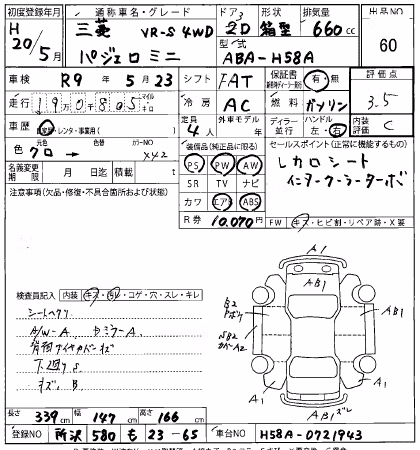 初度登録年月 通称車名・グレード ドア 形状 排気量 出品NO
H 20年 5月 三菱 パジェロミニ VR-S 4WD 3 2D 箱型 660cc 60
型式 ABA-H58A
車検 R9年 5月 23 シフト FAT 保証書 有・無 評価点
走行 マイル キロ 冷房 AC 燃料 ガソリン 3.5
車歴 自家用・レンタ・事業用( ) 定員 4人 外車モデル ディーラー 並行 ハンドル 左・右 内装評価 C
元色 色 クロ → 色 カラーNO X42 装備品(純正品に限る) セールスポイント(正常に機能するもの)
名義変更期限 月 日迄 積載 t PS PW AW レカロシート
注意事項(欠品・修復・不具合箇所および状態) SR TV ナビ インタークーラーターボ
カワ エアB ABS
R券 10,070円 FW キズ・ヒビ割・リペア跡・X要
A1
AB1
検査員記入 内装 キズ・汚れ・コゲ・穴・スレ・キレ
シートヘタリ
A/W-A
下廻りS
キズ、B
B2
A1
A1
A1
AB1
長さ 339cm 幅 147cm 高さ 166cm
登録NO 所沢 580 も 23-65 車台NO H58A-0721943